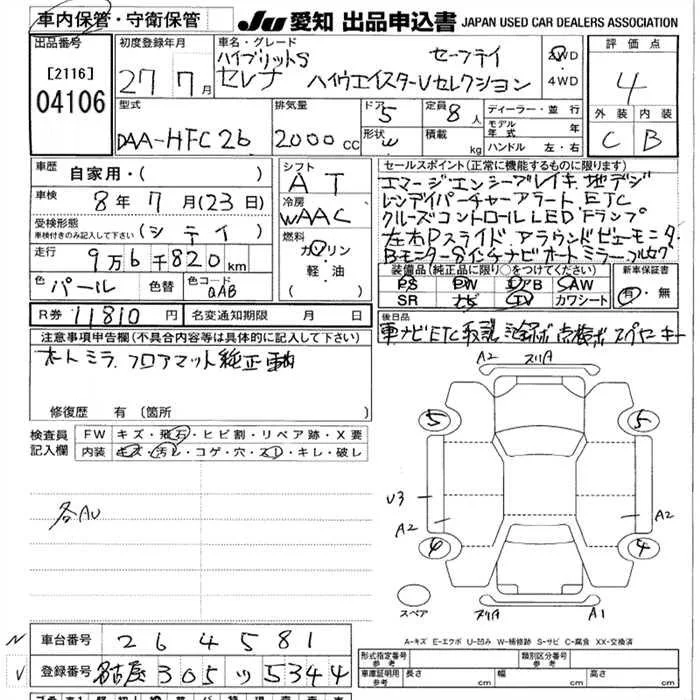 車内保管・守衛保管 JU 愛知 出品申込書 JAPAN USED CAR DEALERS ASSOCIATION
出品番号
[2116]
04106
初度登録年月
27 7月
車名・グレード
ハイブリットS セーフティ
セレナ ハイウエイスターVセレクション
2WD
4WD
評価点
4
外装 内装
C B
型式
DAA-HFC26
排気量
2000CC
ドア 5
形状 W
定員 8人
積載 kg
ディーラー・並行
モデル年式 年
ハンドル 左・右
車歴 自家用・( )
車検 8年 7月(23日)
受検形態
車検付きのみ記入して下さい (シティ)
走行 9万6千820km
色 パール 色替 色コード QAB
シフト
AT
冷房
WAAC
燃料
ガソリン
軽・油
セールスポイント(正常に機能するものに限ります)
エマージェンシーブレイキ.地デジ
レンデイパーチャーアラート ETC
クルーズコントロール LED Fランプ
左右Pスライド.アラウンドビューモニタ
装備品(純正品に限り○をつけてください)
PS PW エアB SAW
SR ナビ TV カワシート
新車保証書
有・無
R券 11810円 名変通知期限 月 日
後日品
注意事項申告欄(不具合内容等は具体的に記入して下さい)
オートミラ.フロアマット純正
修復歴 有(箇所
検査員記入欄
FW キズ・飛石・ヒビ割・リペア跡・X要
内装 キズ・汚レ・コゲ・穴・スレ・キレ・破レ
A2 スリA
5 5
V3
A2 A2
4
スペア
スリA A1
各AU
A-キズ E-エクボ U-凹み W-補修跡 S-サビ C-腐食 XX-交換済
N 車台番号 264581
V 登録番号 名古屋 305 ツ 5344
形式指定番号 参考 類別区分番号 参考
車庫証明用 参考 長さ cm 幅 cm 高さ cm